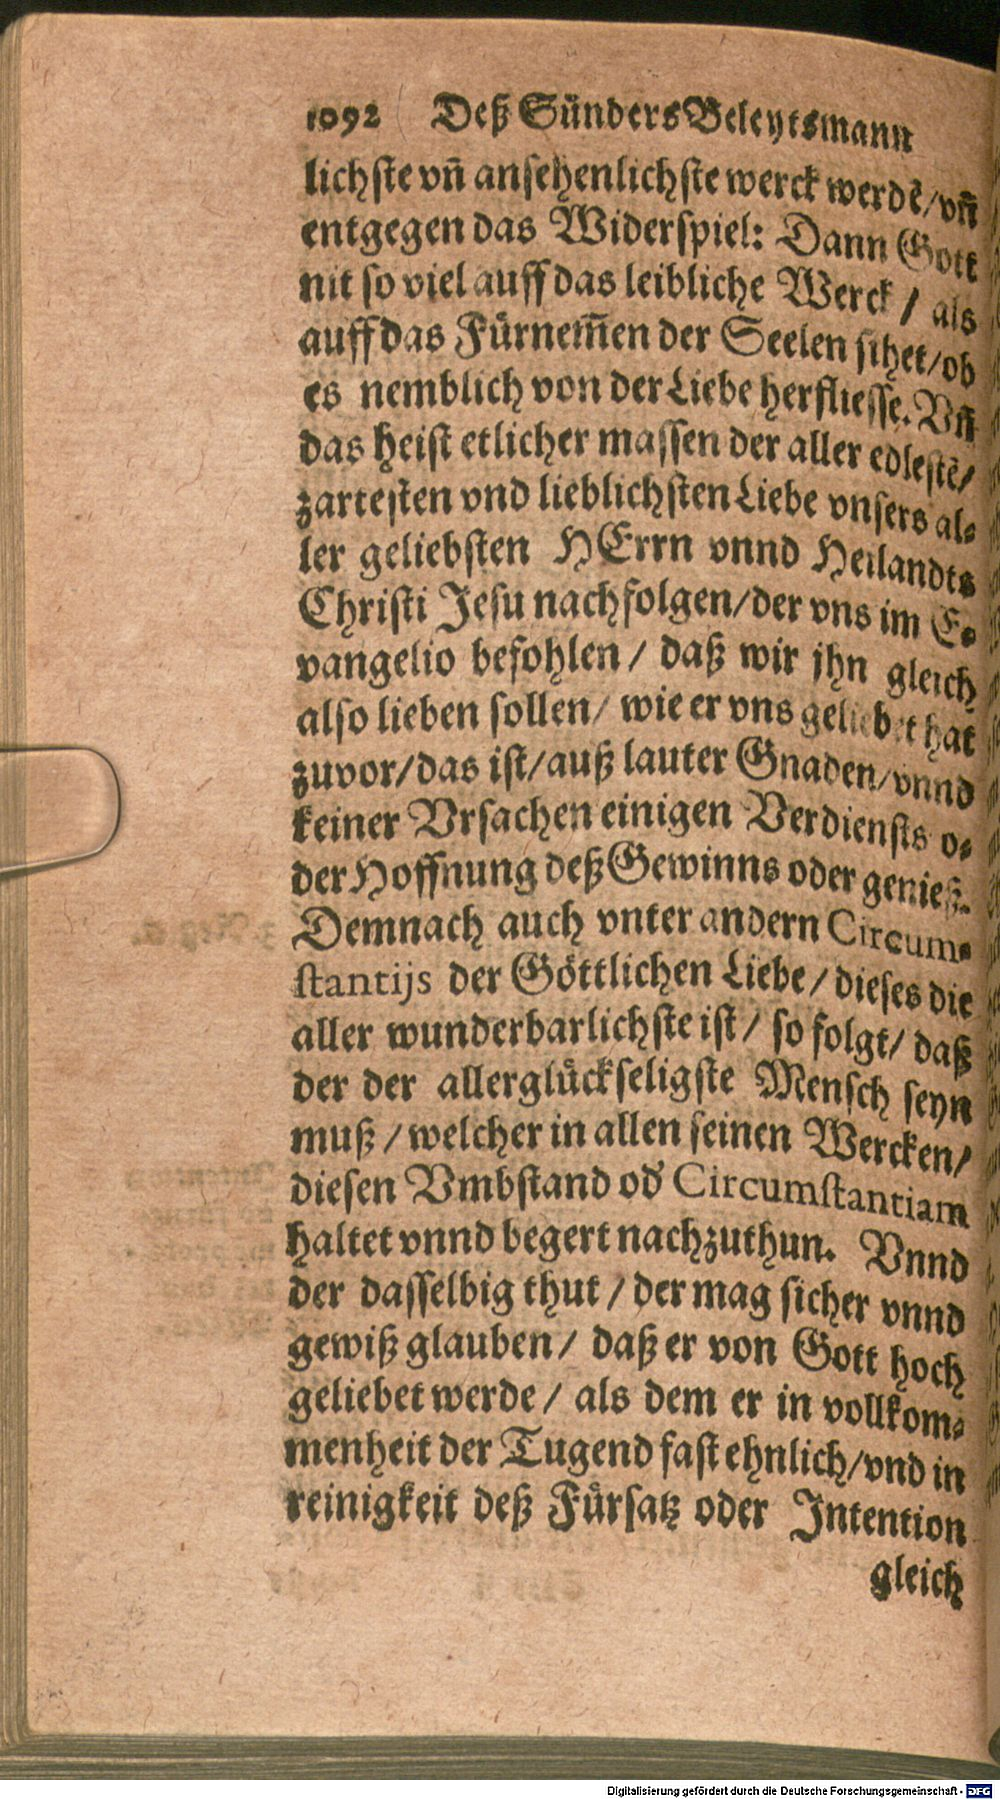 1092 Deß Sünders Beleytsmann
lichste vn̄ ansehenlichste werck werdē/vn̄
entgegen das Widerspiel: Dann Gott
nit so viel auff das leibliche Werck / als
auff das Fürnem̄en der Seelen sihet/ob
es nemblich von der Liebe herfliesse. Vn̄
das heist etlicher massen der aller edlestē/
zartesten vnd lieblichsten Liebe vnsers al-
ler geliebsten HErrn vnnd Heilandts
Christi Jesu nachfolgen/der vns im E-
vangelio befohlen / daß wir jhn gleich
also lieben sollen/ wie er vns geliebet hat
zuvor/das ist/auß lauter Gnaden/vnnd
keiner Vrsachen einigen Verdiensts o-
der Hoffnung deß Gewinns oder genieß.
Demnach auch vnter andern Circum-
stantijs der Göttlichen Liebe / dieses die
aller wunderbarlichste ist / so folgt/ daß
der der allerglückseligste Mensch seyn
muß / welcher in allen seinen Wercken/
diesen Vmbstand od̓ Circumstantiam
haltet vnnd begert nachzuthun. Vnnd
der dasselbig thut / der mag sicher vnnd
gewiß glauben / daß er von Gott hoch
geliebet werde / als dem er in vollkom-
menheit der Tugend fast ehnlich/vnd in
reinigkeit deß Fürsatz oder Intention
gleich
Digitalisierung gefördert durch die Deutsche Forschungsgemeinschaft - DFG